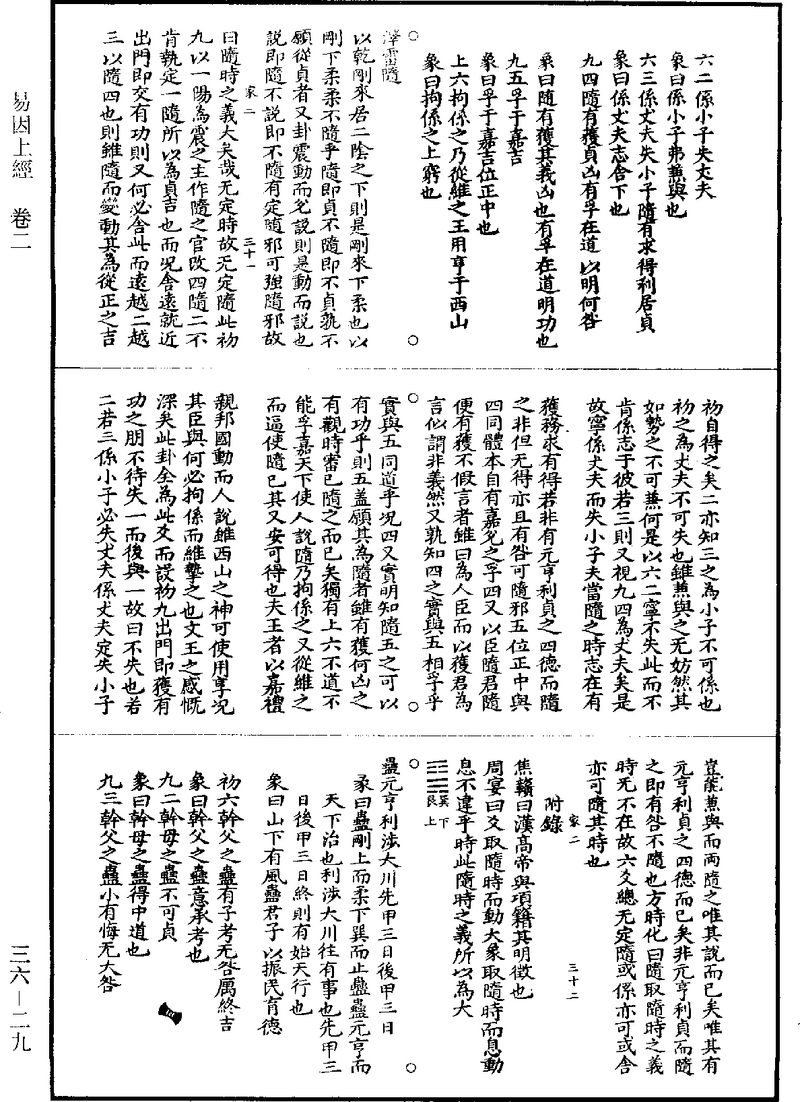 易因上經　卷二
三六—二九
六二係小子失丈夫
象曰係小子弗兼與也
六三係丈夫失小子隨有求得利居貞
象曰係丈夫志舍下也
九四隨有獲貞凶有孚在道以明何咎
象曰隨有獲其義凶也有孚在道明功也
九五孚于嘉吉
象曰孚于嘉吉位正中也
上六拘係之乃從維之王用亨于西山
象曰拘係之上窮也
○　○
澤雷隨
以乾剛來居二陰之下則是剛來下柔也以
剛下柔柔不隨乎隨即貞不隨即不貞孰不
願從貞者又卦震動而兌說則是動而說也
說即隨不說即不隨有定隨邪可強隨邪故
家二　三十一
曰隨時之義大矣哉无定時故无定隨此初
九以一陽為震之主作隨之官改四隨二不
肯執定一隨所以為貞吉也而況舍遠就近
出門即交有功則又何必含此而遠越二越
三以隨四也則雖隨而變動其為從正之吉
初自得之矣二亦知三之為小子不可係也
初之為丈夫不可失也雖兼與之无妨然其
如勢之不可兼何是以六二寧不失此而不
肯係志于彼若三則又視九四為丈夫矣是
故寧係丈夫而失小子夫當隨之時志在有
獲務求有得若非有元亨利貞之四德而隨
之非但无得亦且有咎可隨邪五位正中與
四同體本自有嘉兌之孚四又以臣隨君隨
便有獲不假言者雖曰為人臣而以獲君為
言似謂非義然又孰知四之實與五相孚乎
○　○
實與五同道乎況四又實明知隨五之可以
有功乎則五蓋願其為隨者雖有獲何凶之
有觀時審己隨之而已矣獨有上六不道不
能孚嘉天下使人說隨乃拘係之又從維之
而逼使隨已其又安可得也夫王者以嘉禮
親邦國動而人說雖西山之神可使用享況
其臣與何必拘係而維摯之也文王之感慨
深矣此卦全為此爻而設初九出門即獲有
功之朋不待失一而後與一故曰不失也若
二若三係小子必失丈夫係丈夫定失小子
豈能兼與而兩隨之唯其說而已矣唯其有
元亨利貞之四德而已矣非元亨利貞而隨
之即有咎不隨也方時化曰隨取隨時之義
時无不在故六爻總无定隨或係亦可或舍
亦可隨其時也
家二　三十二
附錄
焦贛曰漢高帝與項籍其明徵也
周宴曰爻取隨時而動大象取隨時而息動
息不違乎時此隨時之義所以為大
巽下
艮上
○　○
蠱元亨利涉大川先甲三日後甲三日
彖曰蠱剛上而柔下巽而止蠱蠱元亨而
天下治也利涉大川往有事也先甲三
日後甲三日終則有始天行也
象曰山下有風蠱君子以振民育德
初六幹父之蠱有子考无咎厲終吉
象曰幹父之蠱意承考也
九二幹母之蠱不可貞
象曰幹母之蠱得中道也
九三幹父之蠱小有悔无大咎